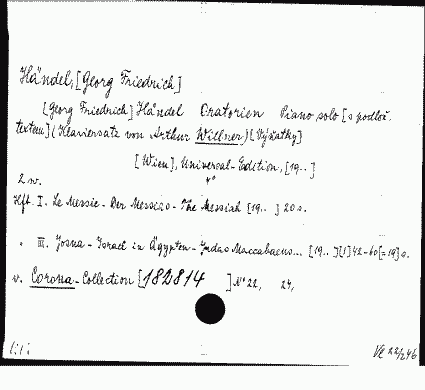 Händel, [Georg Friedrich]
[Georg Friedrich] Händel Oratorien Piano solo [s podlož.
textem] (Klaviersatz von Arthur Willner) (Výňatky)
[Wien], Universal-Edition, [19..]
4°
2 sv.
Hft. I. Le Messie - Der Messias - The Messiah [19..] 20 s.
" III. Josua - Israel in Ägypten - Judas Maccabaeus... [19..] [1] 42-60 [=19] s.
v. Corona-Collection [182814 ] N° 22, 24,
Ve 22/246